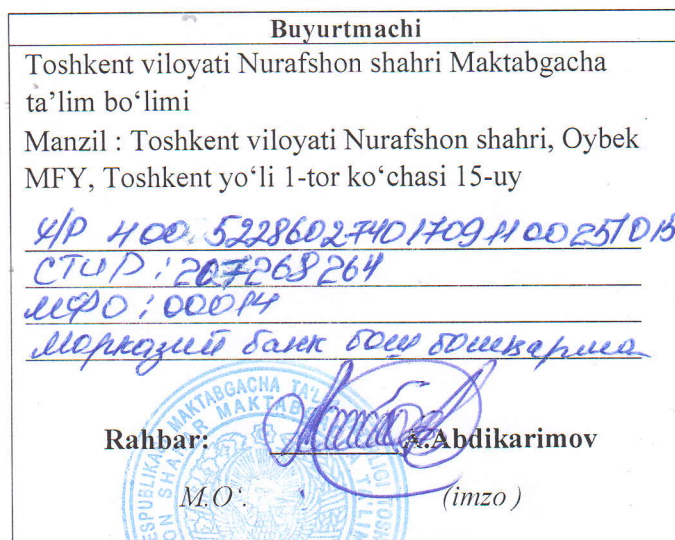 Buyurtmachi
Toshkent viloyati Nurafshon shahri Maktabgacha
ta’lim bo‘limi
Manzil : Toshkent viloyati Nurafshon shahri, Oybek
MFY, Toshkent yo‘li 1-tor ko‘chasi 15-uy
СТИР: 207268264
МФО: 00014
Марказий банк бош бошқарма
Rahbar: A.Abdikarimov
M.O‘. (imzo )